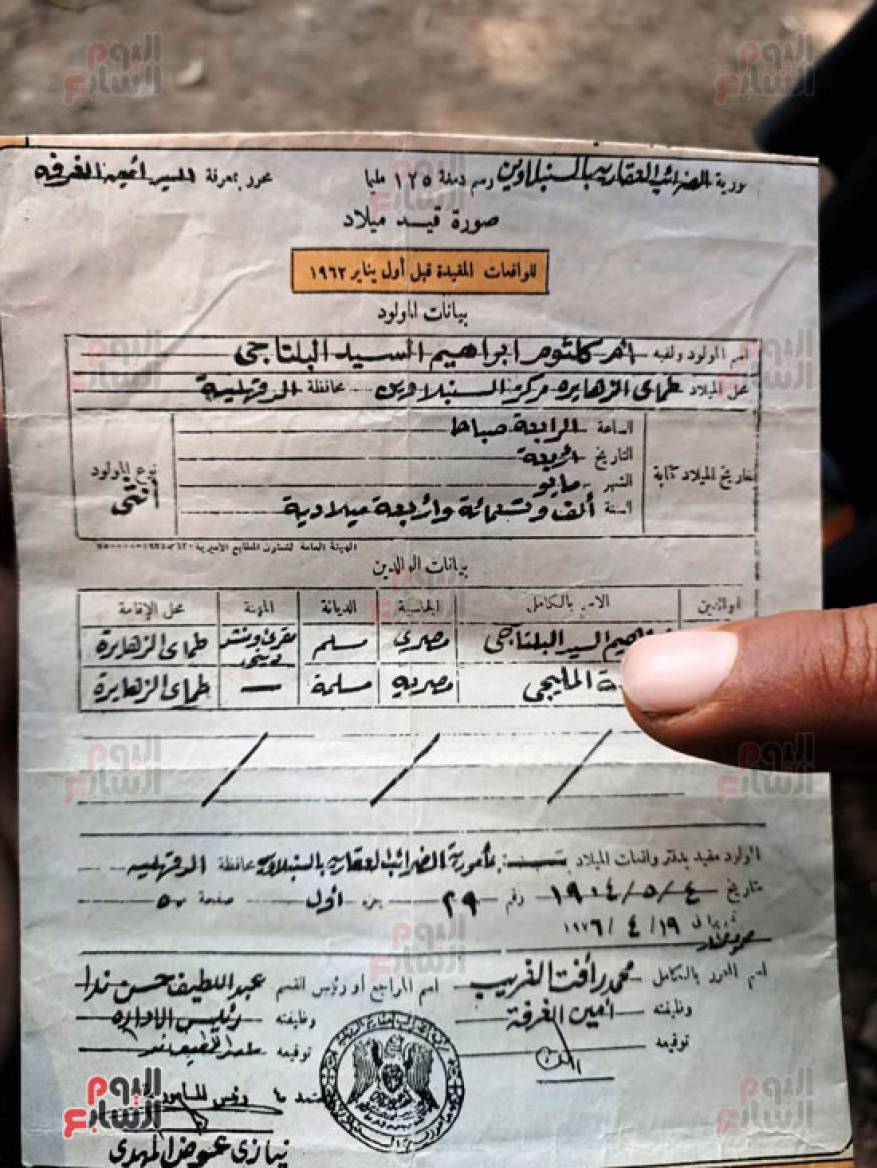 اليوم السابع
اليوم السابع
الضرائب العقاريه بالسنبلاوين رسم دمغة ١٢٥ مليما محرر بمعرفة السيد / أمين الغرفه
صورة قيد ميلاد
للواقعات المقيدة قبل أول يناير ١٩٦٢
بيانات المولود
اسم المولود ولقبه أم كلثوم ابراهيم السيد البلتاجى
محل الميلاد طماى الزهايره مركز السنبلاوين محافظة الدقهلية
تاريخ الميلاد كتابة
الساعة الرابعة صباحا
التاريخ أربعة
الشهر مايو
السنة ألف وتسعمائة وأربعة ميلادية
نوع المولود
أنثى
الهيئة العامة لشئون المطابع الأميرية
بيانات الوالدين
الوالدين الاسم بالكامل الجنسية الديانة المهنة محل الإقامة
السيد البلتاجى مصرى مسلم مقرئ ومنشد دينى طماى الزهايرة
المليجى مصرية مسلمة — طماى الزهايرة
المولود مقيد بدفتر واقعات الميلاد بمأمورية الضرائب العقاريه بالسنبلاوين محافظة الدقهلية
بتاريخ ١٩٠٤/٥/٤ رقم ٢٩ جزء أول صفحة ٥٠
١٩٧٦/٤/١٩
اسم المحرر بالكامل محمد رأفت الغريب اسم المراجع أو رئيس القسم عبداللطيف حسن ندا
وظيفته أمين الغرفة وظيفته رئيس الاداره
توقيعه توقيعه
نيازى عوض المهدى
اليوم السابع